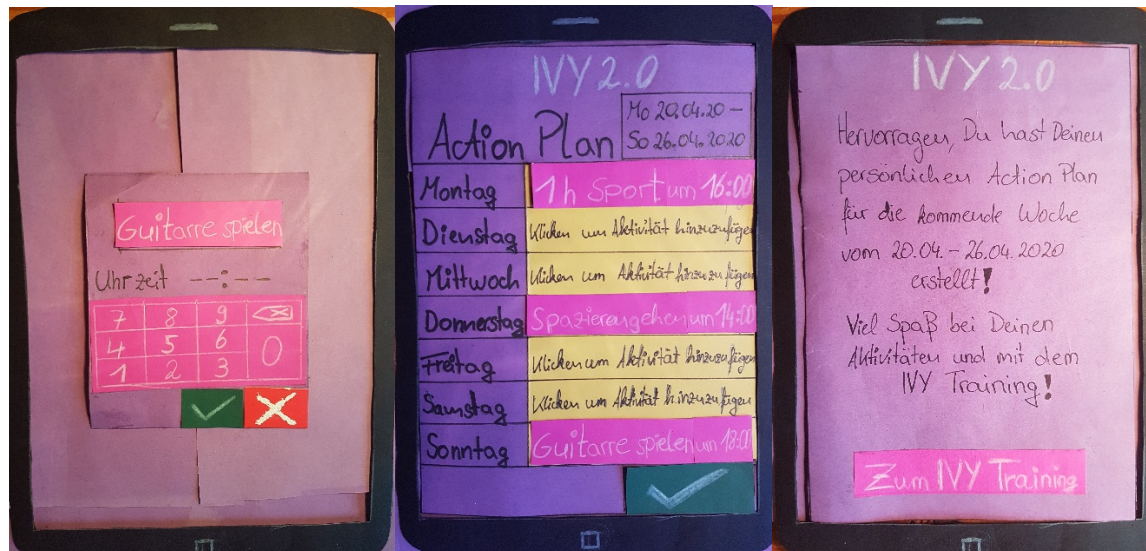 Guitarre spielen
Uhrzeit --:--
7 8 9
4 5 6 0
1 2 3
IVY 2.0
Action Plan
Mo 20.04.20 –
So 26.04.2020
Montag 1h Sport um 16:00
Dienstag Klicken um Aktivität hinzuzufügen
Mittwoch Klicken um Aktivität hinzuzufügen
Donnerstag Spazierengehen um 14:00
Freitag Klicken um Aktivität hinzuzufügen
Samstag Klicken um Aktivität hinzuzufügen
Sonntag Guitarre spielen um 18:00
IVY 2.0
Hervorragen, Du hast Deinen
persönlichen Action Plan
für die kommende Woche
vom 20.04. – 26.04.2020
erstellt!
Viel Spaß bei Deinen
Aktivitäten und mit dem
IVY Training!
Zum IVY Training